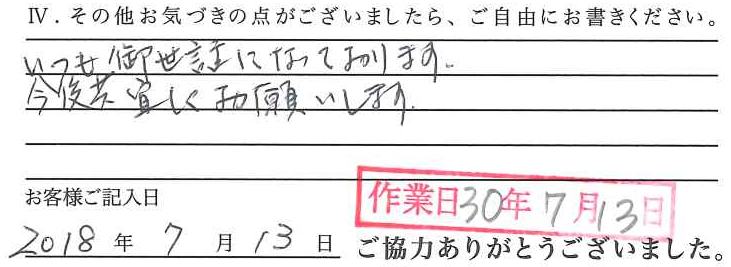 Ⅳ．その他お気づきの点がございましたら、ご自由にお書きください。
いつも御世話になっております。
今後共宜しくお願いします。
お客様ご記入日
作業日30年7月13日
2018年7月13日
ご協力ありがとうございました。